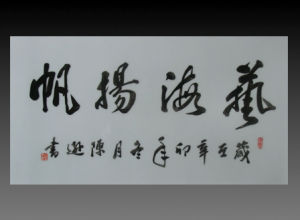 藝海揚帆
歲在辛卯年冬月陳書